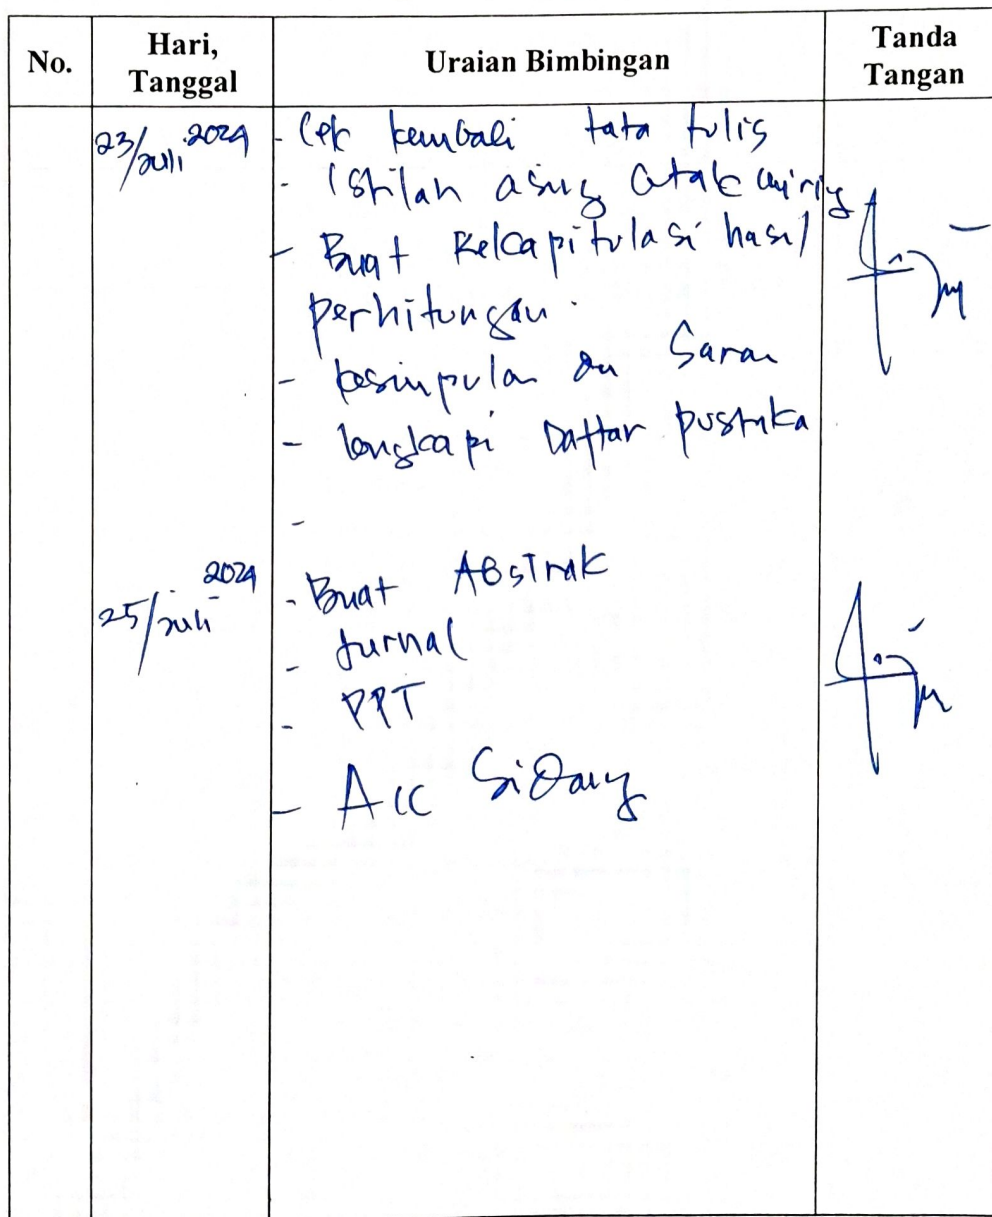 No.
Hari, Tanggal
Uraian Bimbingan
Tanda Tangan
23/Juli 2024
- Cek kembali tata tulis
- Istilah asing cetak miring
- Buat Rekapitulasi hasil
perhitungan.
- kesimpulan dan Saran
- lengkapi Daftar pustaka
-
25/Juli 2024
- Buat ABSTrak
- Jurnal
- PPT
- Acc Sidang